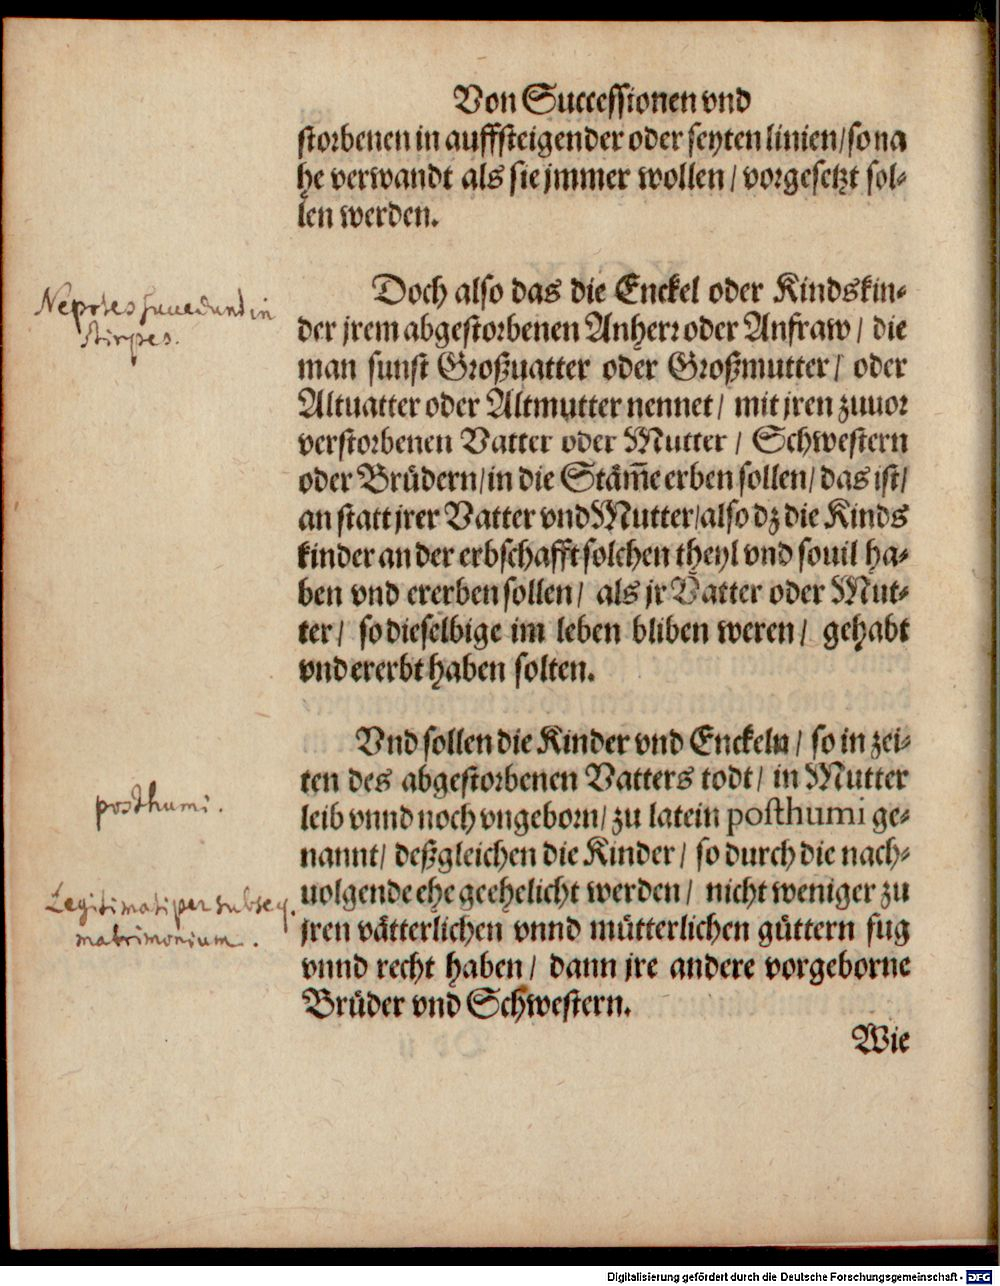 Von Successionen vnd
storbenen in auffsteigender oder seyten linien/ so na
he verwandt als sie jmmer wollen/ vorgesetzt sol-
len werden.
Nepotes succedunt in
stirpes.
Doch also das die Enckel oder Kindskin-
der jrem abgestorbenen Anherr oder Anfraw/ die
man sunst Großuatter oder Großmutter/ oder
Altuatter oder Altmutter nennet/ mit jren zuuor
verstorbenen Vatter oder Mutter/ Schwestern
oder Brüdern/ in die Stäm̄e erben sollen/ das ist/
an statt jrer Vatter vnd Mutter/ also dz die Kinds
kinder an der erbschafft solchen theyl vnd souil ha-
ben vnd ererben sollen/ als jr Vatter oder Mut-
ter/ so dieselbige im leben bliben weren/ gehabt
vnd ererbt haben solten.
Vnd sollen die Kinder vnd Enckeln/ so in zei-
ten des abgestorbenen Vatters todt/ in Mutter
posthumi.
leib vnnd noch vngeborn/ zu latein posthumi ge-
nannt/ deßgleichen die Kinder/ so durch die nach-
Legitimati per subseq.
matrimonium.
uolgende ehe geehelicht werden/ nicht weniger zu
jren vätterlichen vnnd mütterlichen güttern fug
vnnd recht haben/ dann jre andere vorgeborne
Brüder vnd Schwestern.
Wie
Digitalisierung gefördert durch die Deutsche Forschungsgemeinschaft - DFG